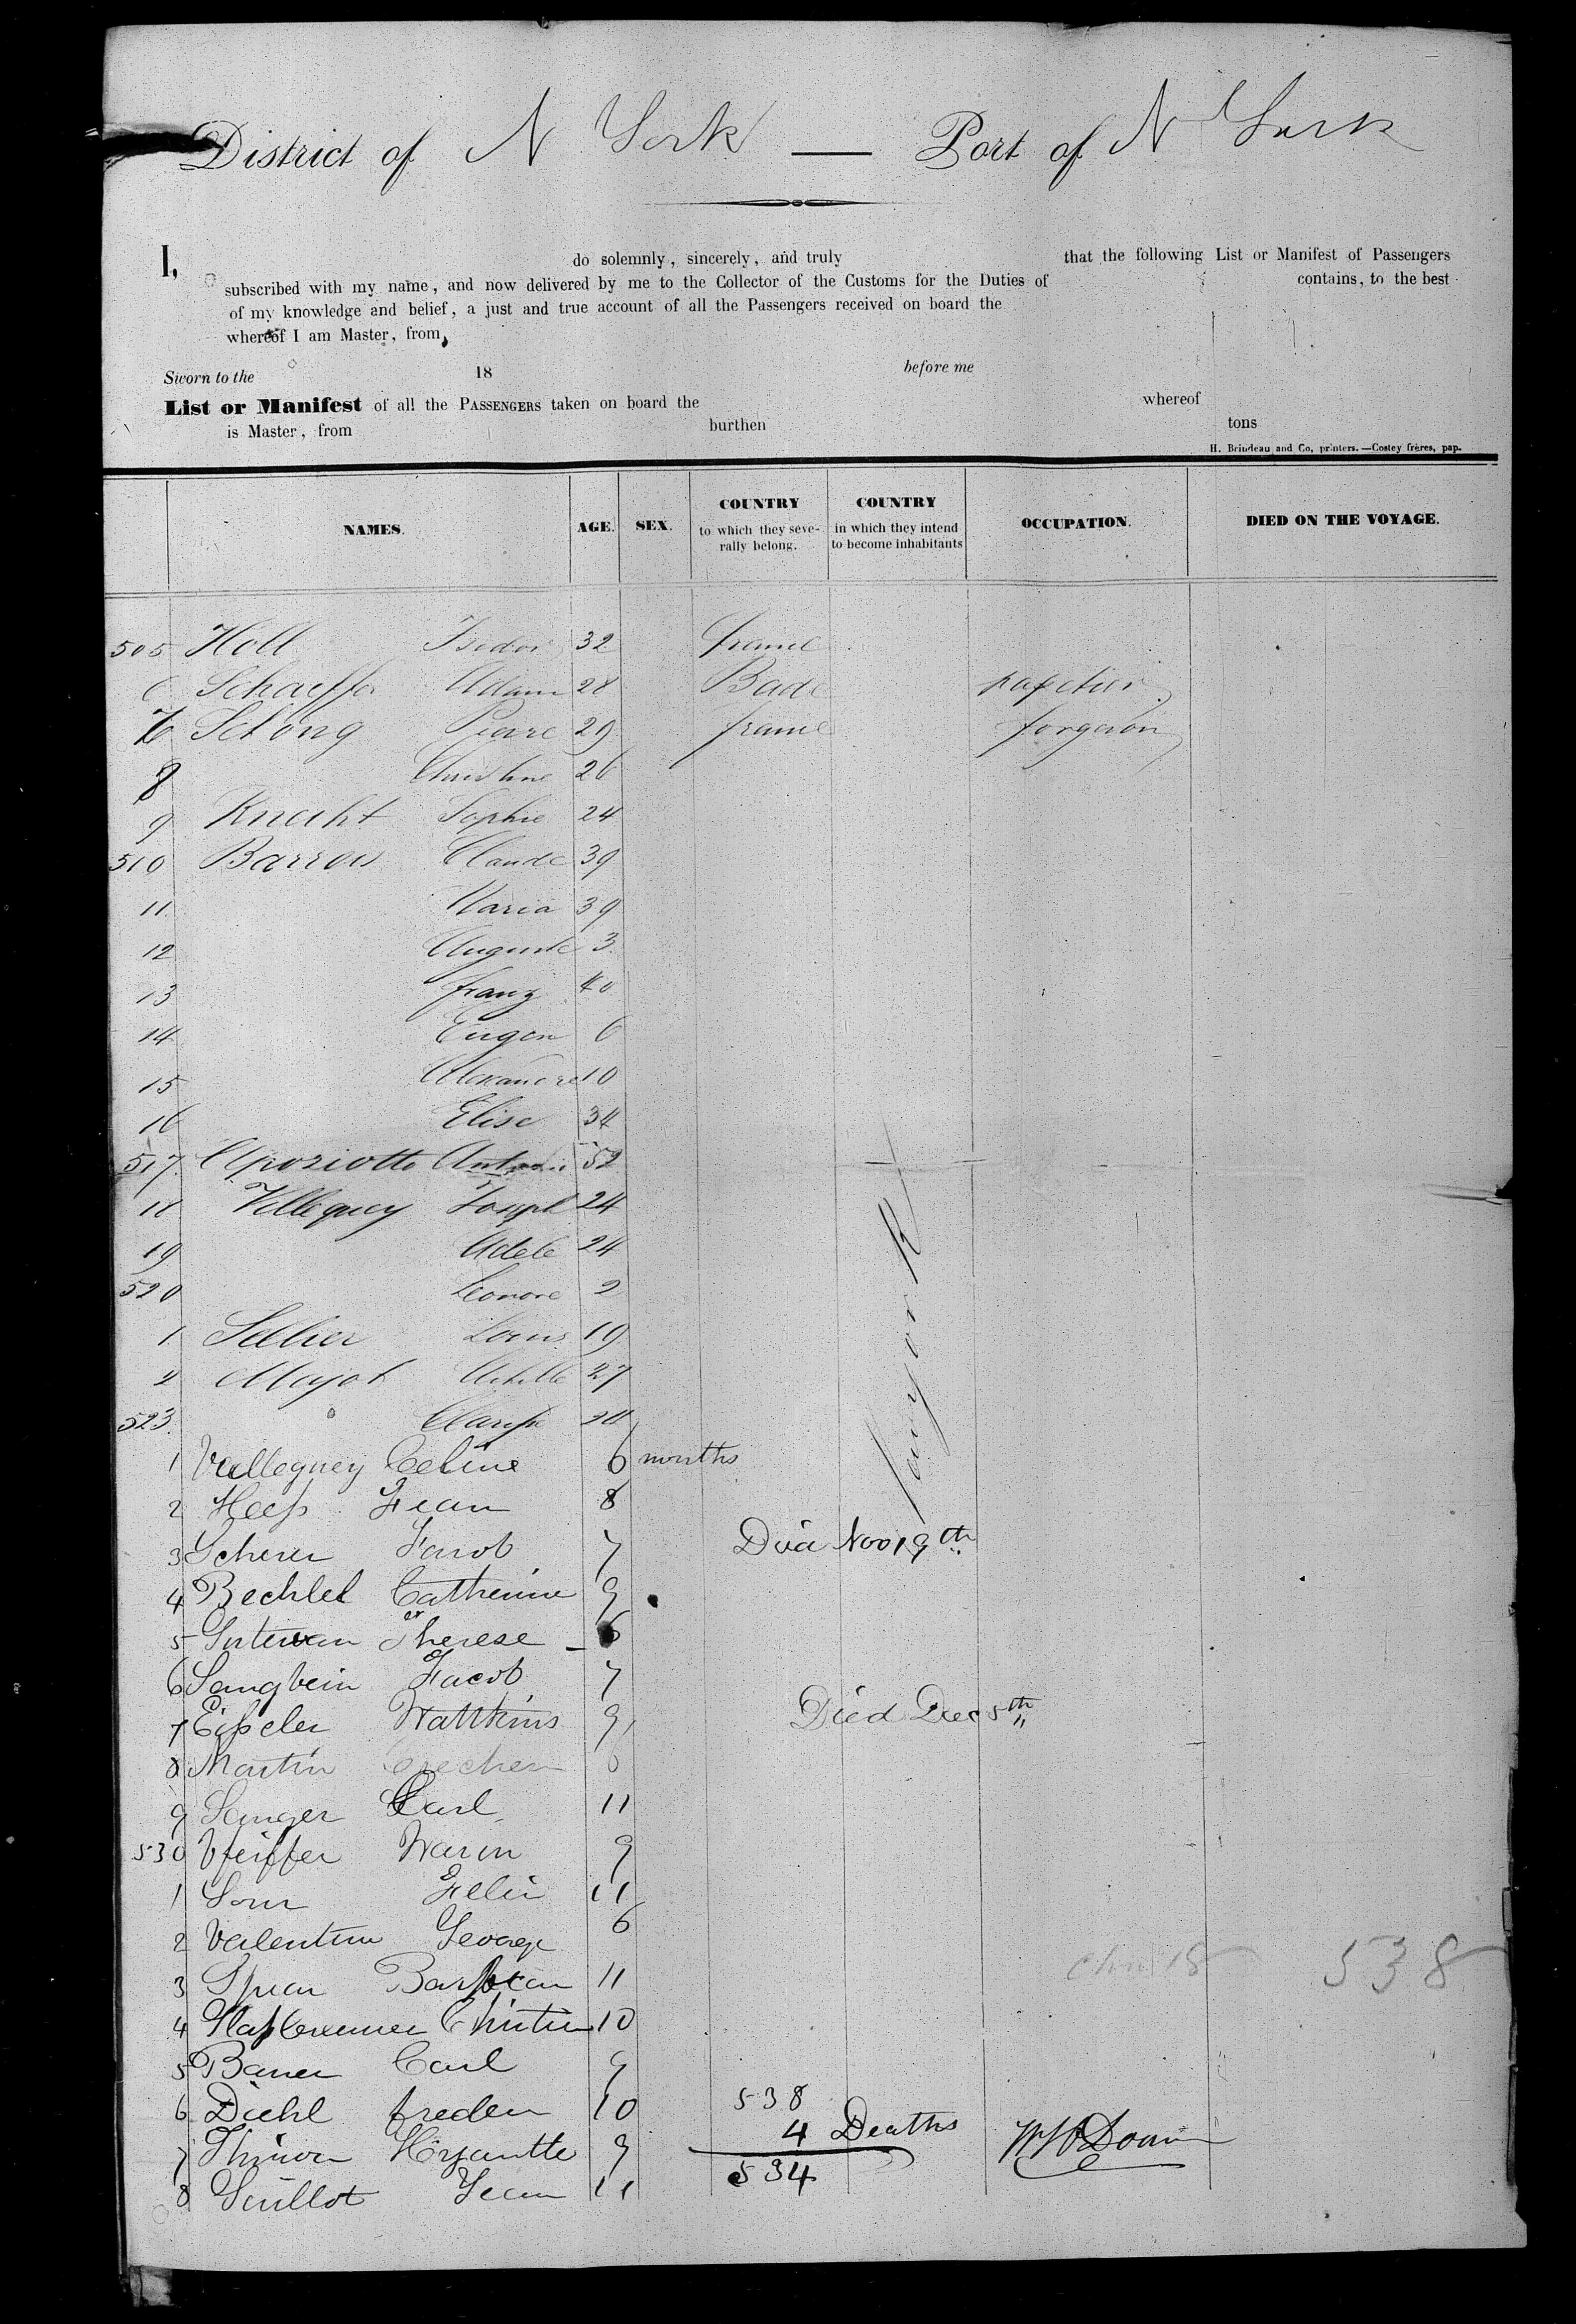 District of N York — Port of N York
I, do solemnly, sincerely, and truly that the following List or Manifest of Passengers
subscribed with my name, and now delivered by me to the Collector of the Customs for the Duties of contains, to the best
of my knowledge and belief, a just and true account of all the Passengers received on board the
whereof I am Master, from
Sworn to the 18 before me
List or Manifest of all the PASSENGERS taken on board the whereof
is Master, from burthen tons
H. Brindeau and Co, printers.—Costey frères, pap.
NAMES. AGE. SEX. COUNTRY to which they severally belong. COUNTRY in which they intend to become inhabitants OCCUPATION. DIED ON THE VOYAGE.
505 Holl Isidor 32 france
6 Schaeffer Adam 28 Bade
7 Schong Pierre 29 france forgeron
8 Christine 26
9 Knecht Sophie 24
510 Barrou Claude 39
11 Maria 39
12 Auguste 3
13 franz 40
14 Eugen 6
15 Alexandre 10
16 Elise 34
517 52
18 Villequey Joseph 24
19 Adele 24
520 Leonore 2
1 Sellier Louis 19
2 Majot Achille 27
523
1 Vuillequey Celine 6 months
2 Heess Jean 8
3 Scherer Jacob 7 Died Nov 19th
4 Bechlel Catherine 9
5 Therese 6
6 Langbein Jacob 7
7 Eissler 9 Died Dec 5th
8 Martin 6
9 Senger Carl 11
530 Pfeiffer 9
1 11
2 Valentin George 6
3 11
4 10
5 Bauer Carl 9
6 Diehl 10 538
7 9 4 Deaths
8 Guillot Jean 11 534
538